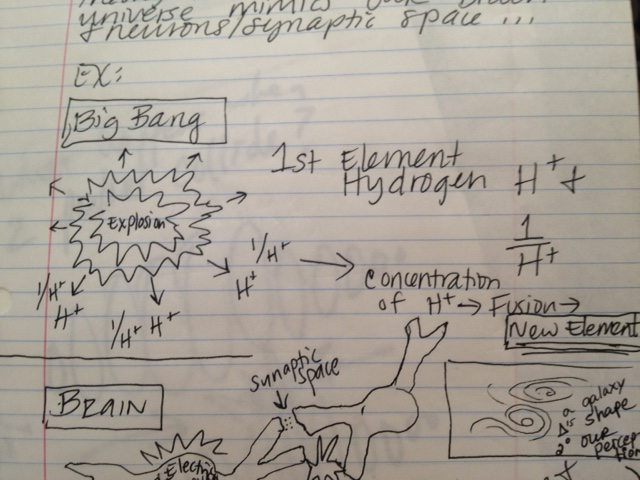 universe mimics our brain
& neurons/synaptic space ...
EX:
Big Bang
Explosion
1st Element
Hydrogen H⁺ +
1/H⁺
1/H⁺
H⁺
1/H⁺
H⁺
1/H⁺ H⁺
Concentration
of H⁺ → Fusion →
New Element
BRAIN
synaptic
space
Electric
a galaxy
Δ is shape
2° our
percep
tion